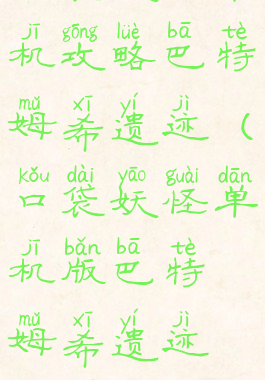 jī gōng lüè bā tè
机攻略巴特
mǔ xī yí jì
姆希遗迹（
kǒu dài yāo guài dān
口袋妖怪单
jī bǎn bā tè
机版巴特
mǔ xī yí jì
姆希遗迹